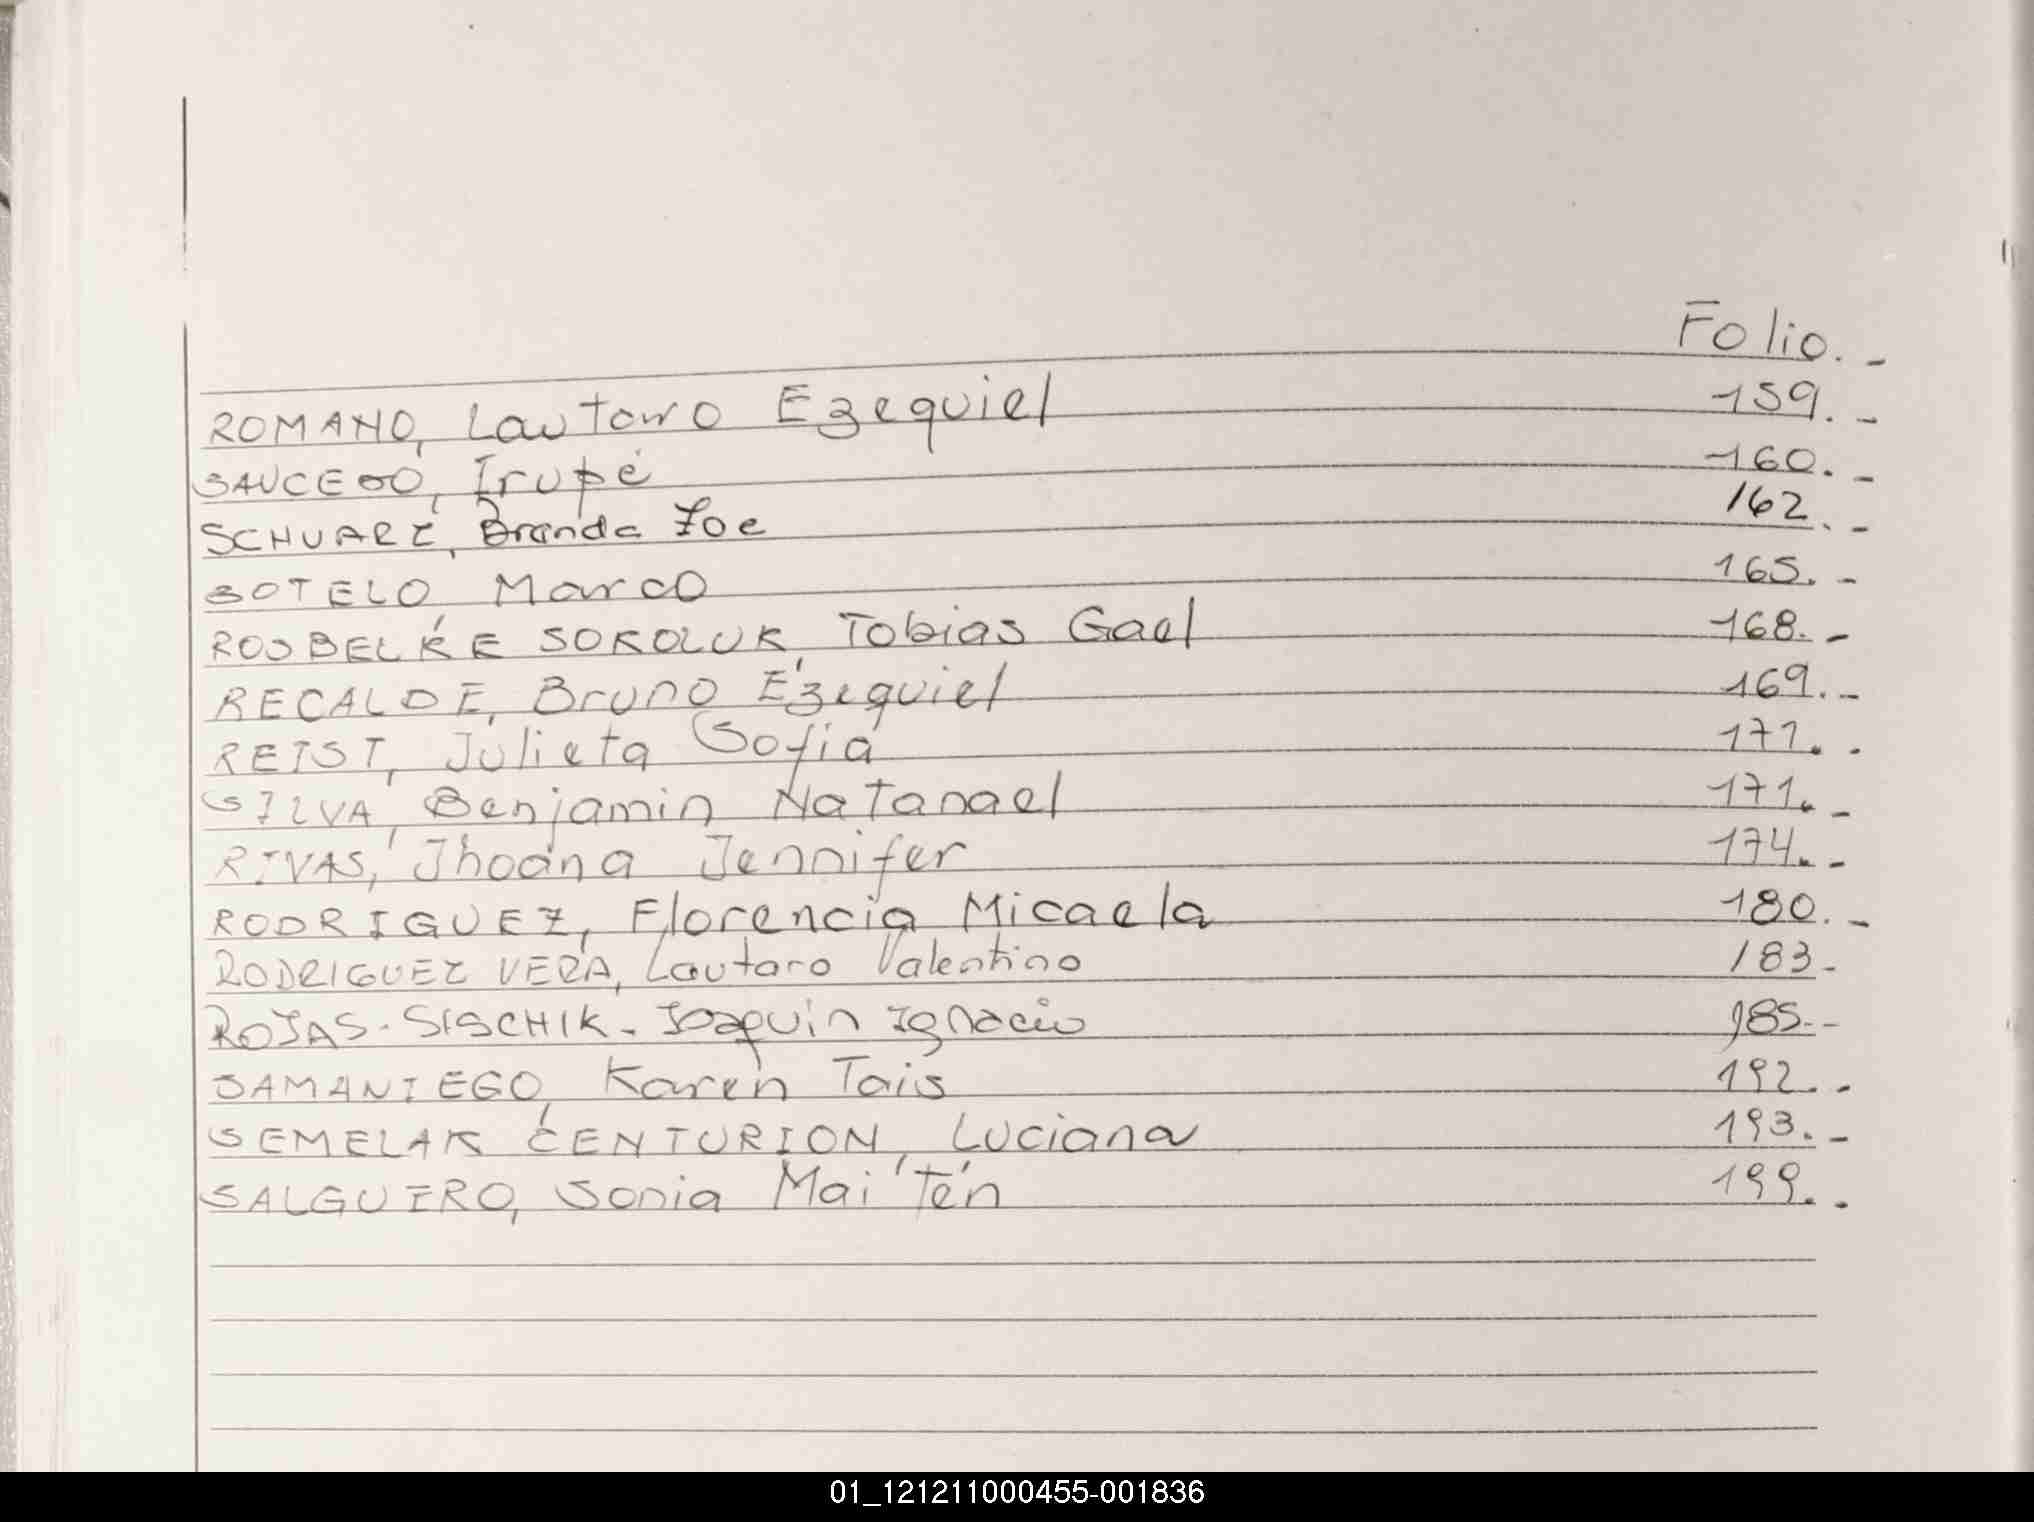 Folio. -
ROMANO, Lautaro Ezequiel 159. -
SAUCEDO, Irupé 160. -
SCHUARZ, Brenda Zoe 162. -
SOTELO, Marco 165. -
ROSBELKE SOKOLUK, Tobias Gael 168. -
RECALDE, Bruno Ezequiel 169. -
REIST, Julieta Sofia 171. .
SILVA, Benjamin Natanael 171. -
RIVAS, Jhoana Jennifer 174. -
RODRIGUEZ, Florencia Micaela 180. -
RODRIGUEZ VERA, Lautaro Valentino 183 -
ROJAS - SISCHIK - Joaquin Ignacio 185. -
SAMANIEGO, Karen Tais 192. .
SEMELAK CENTURION, Luciana 193. -
SALGUERO, Sonia Mai Tén 199. .
01_121211000455-001836